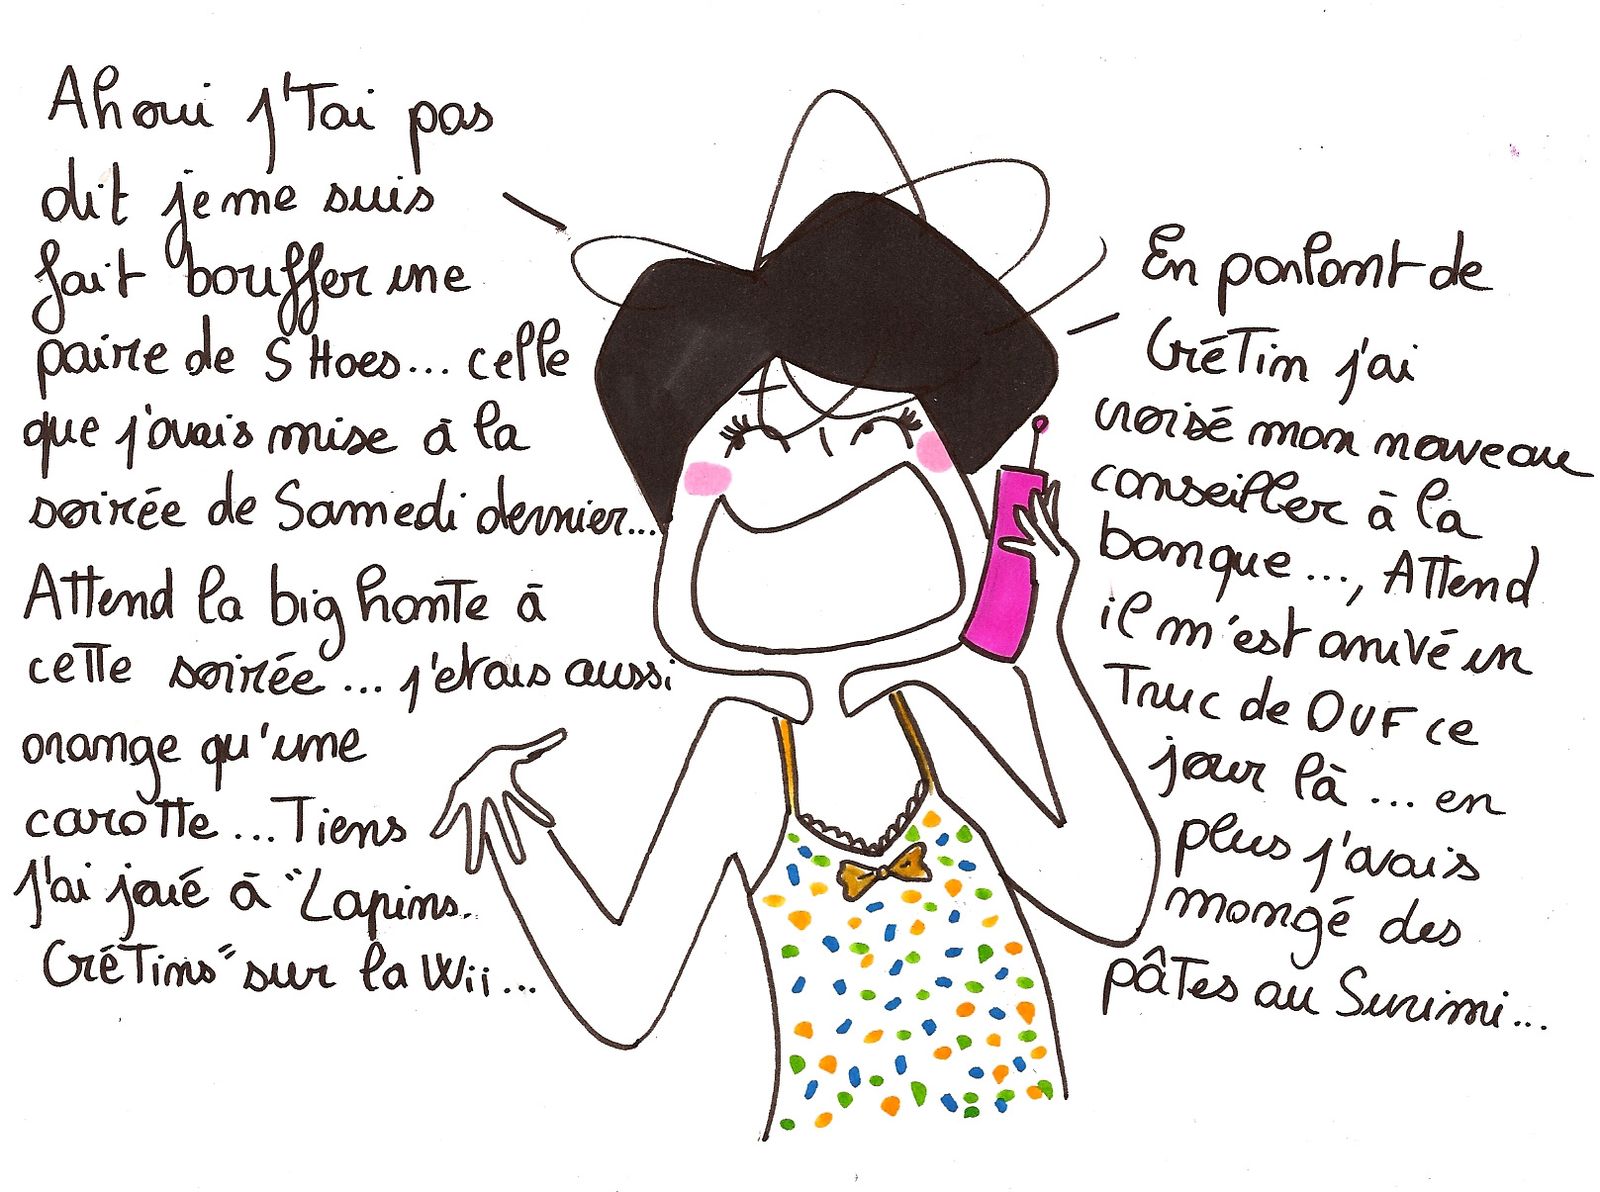 Ah oui j'Tai pas
dit je me suis
fait bouffer une
paire de SHoes... celle
que j'avais mise à la
soirée de Samedi dernier...
Attend la big honte à
cette soirée... j'etais aussi
orange qu'une
carotte... Tiens
J'ai joué à "Lapins
Crétins" sur la Wii...
En parlant de
Crétin j'ai
croisé mon nouveau
conseiller à la
banque..., Attend
il m'est arrivé un
Truc de OUF ce
jour là... en
plus j'avais
mangé des
pâTes au Surimi...